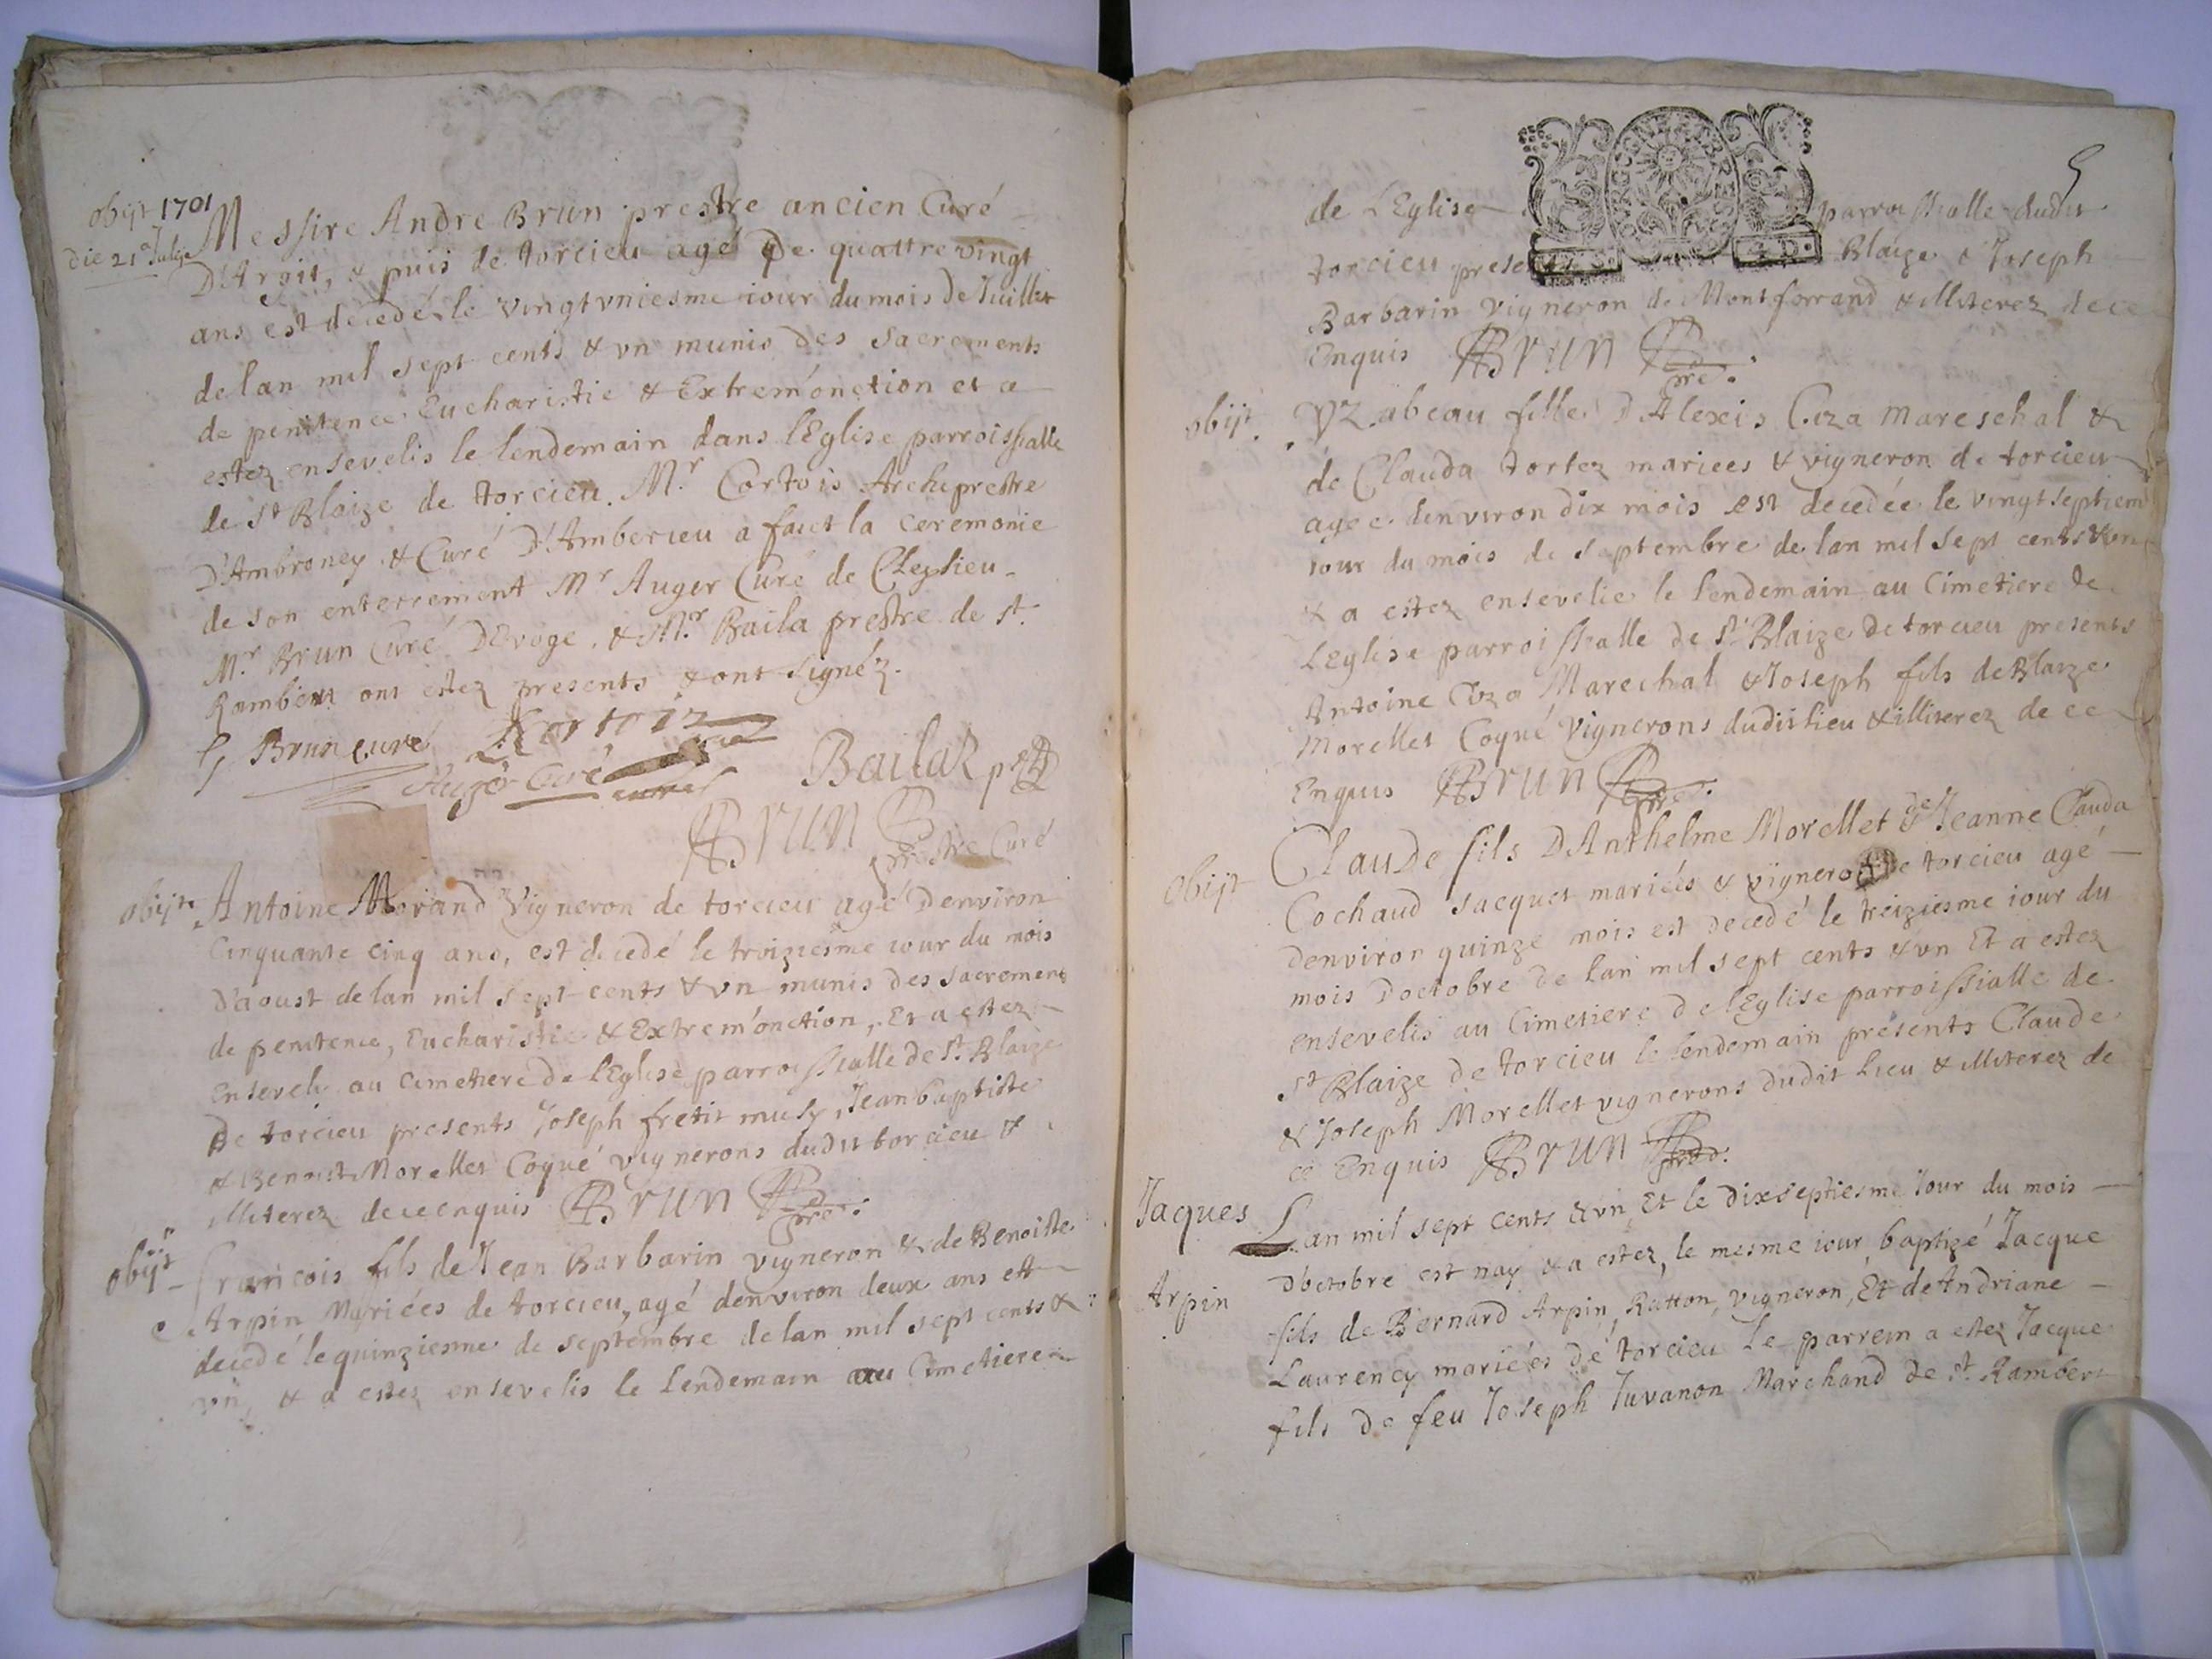 obijt 1701
die 21ª Julije
Messire Andre Brun prestre ancien Curé
D'Argit, & puis de torcieu agé De quattre vingt
ans est decedé le vingt vniesme iour du mois De Juillet
de lan mil sept cents & vn munis des sacrements
de penitence Eucharistie & Extrem'onction et a
estez ensevelis le lendemain dans lEglise parroissialle
de st Blaize de torcieu. Mr Cortois Archiprestre
D'Ambroney & Curé D'Amberieu a faict la ceremonie
de son enterrement Mr Auger Curé de Cleyzieu
Mr Brun Curé DEvoge & Mr Baila prestre de st
Rambert ont estez presents & ont signéz.
Brun curé Cortois
Auger Curé Bailaz
ABrun prestre Curé
obijt Antoine Morand Vigneron de torcieu agé Denviron
Cinquante cinq ans, est decedé le troiziesme iour du mois
D'aoust de lan mil sept cents & vn munis des sacrements
de penitence, Eucharistie & Extrem'onction, Et a estez
Enseveli au cimetiere de lEglise parroissialle de st Blaize
De torcieu presents Joseph fretit musy, Jean baptiste
& Benoist Morellet Coqué vignerons dudit torcieu &
illiterez de ce enquis ABrun pre.
obijt francois fils de Jean Barbarin vigneron & de Benoiste
Arpin Mariées de torcieu, agé denviron deux ans est
decedé le quinziesme de septembre de lan mil sept cents &
vn, & a estez ensevelis le lendemain au Cimetiere
5
de LEglise parroissialle dudit
torcieu presents Blaize & Joseph
Barbarin Vigneron de Montferrand & illiterez de ce
Enquis ABrun pre.
obijt Yzabeau fille D'Alexis Ciza Mareschal &
de Clauda tortez mariees & vigneron de torcieu
agee denviron dix mois est decedée le vingt septiem
iour du mois de septembre de lan mil sept cents & vn
& a estez ensevelie le lendemain au Cimetiere de
LEglise parroissialle de st Blaize de torcieu presents
Antoine Ciza Marechal & Joseph fils de Blaize
Morellet Coqué Vignerons dudit lieu & illiterez de ce
Enquis ABrun pre.
obijt Claude fils D'Anthelme Morellet & de Jeanne Clauda
Cochaud Jacquet mariées & vigneron de torcieu agé
denviron quinze mois est decedé le treiziesme iour du
mois D'octobre de lan mil sept cents & vn Et a estez
ensevelis au Cimetiere de lEglise parroissialle de
st Blaize de torcieu le lendemain presents Claude
& Joseph Morellet vignerons dudit Lieu & illiterez de
ce Enquis ABrun pre.
Jaques
Arpin
Lan mil sept cents & vn Et le dixseptiesme iour du mois
D'octobre est nay & a estez, le mesme iour baptizé Jacque
fils de Bernard Arpin, Rutton, vigneron, Et de Andriane
Laurency mariées de torcieu Le parrein a estez Jacque
fils De feu Joseph Juvanon Marchand de st Rambert